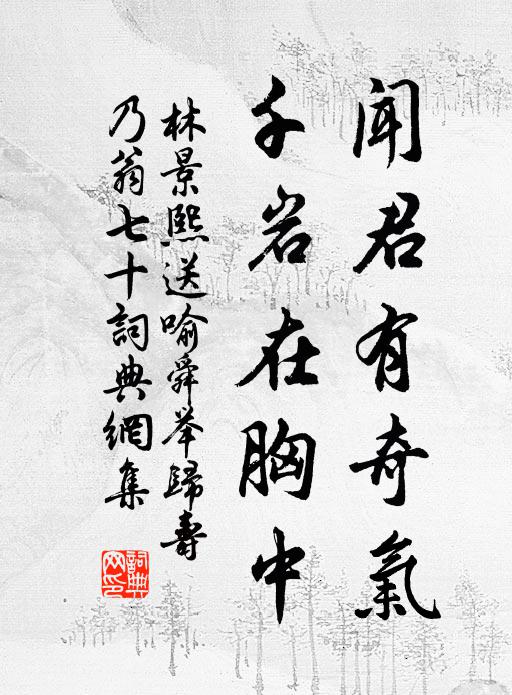 聞君有奇氣
千岩在胸中
林景熙送喻舜举歸壽
乃翁七十詞典網集
詞典
网印